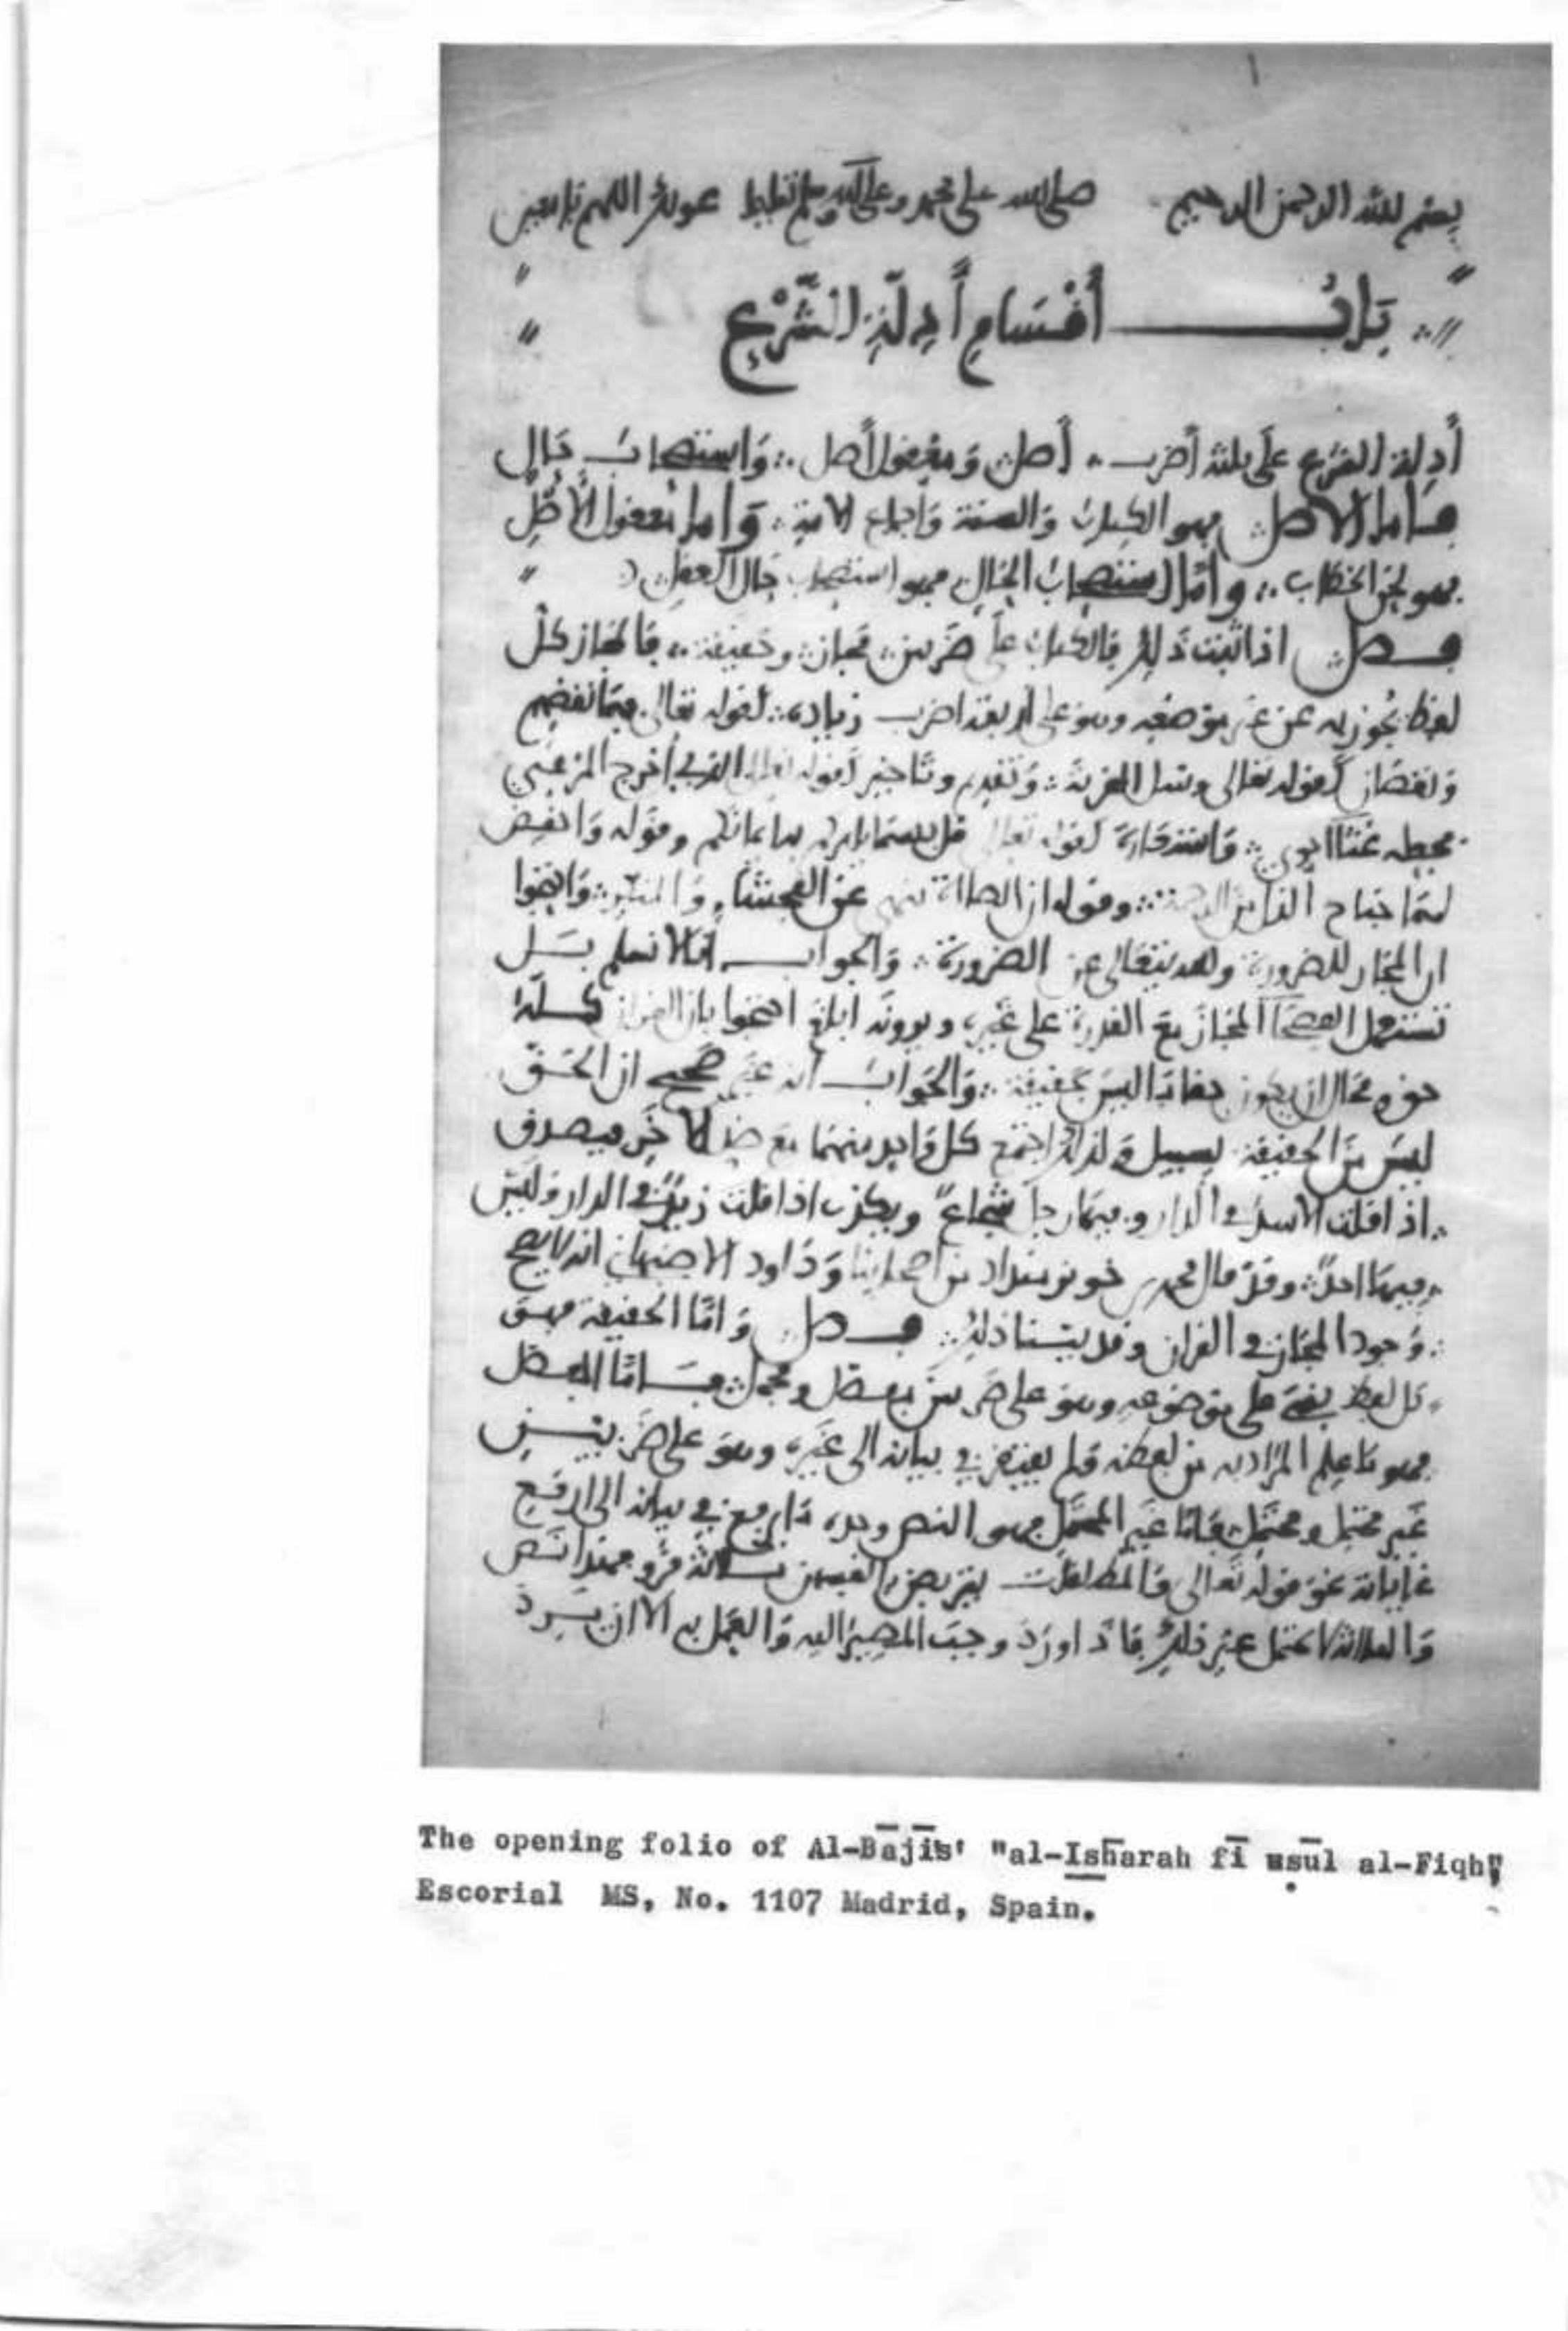 بسم الله الرحمن الرحيم صلى الله على محمد وعلى آله وسلم عونك اللهم يا معين
باب أقسام أدلة الشرع
أدلة الشرع على ثلثة أضرب أصل ومعقول أصل واستصحاب حال
فأما الأصل فهو الكتاب والسنة وإجماع الأمة وأما معقول الأصل
فهو لحن الخطاب وأما استصحاب الحال فهو استصحاب حال العقل
فصل اذا ثبت ذلك فالكتاب على ضربين مجاز وحقيقة فالمجاز كل
لفظ تجوز به عن غير موضعه وهو على أربعة اضرب زيادة لقوله تعالى فبما نقضهم
ونقصان لقوله تعالى وسل القرية وتقديم وتاخير لقوله تعالى الذي أخرج المرعى
فجعله غثاا احوى واستعارة لقوله تعالى قل بيسما يامركم به ايمانكم وقوله واخفض
لهما جناح الذل من الرحمة وقوله ان الصلاة تنهى عن الفحشاء والمنكر واحتجوا
ان المجاز للضرورة والله يتعالى عن الضرورة والجواب انا لا نسلم بل
تستعمل الفصحاء المجاز مع القدرة على غيره ويرونه ابلغ احتجوا بان القران كله
حق ومحال ان يكون حقا ما ليس بحقيقة والجواب انه غير صحيح ان الحق
ليس من الحقيقة بسبيل ولذلك اجتمع كل واحد منهما مع ضد الاخر فيصدق
اذا قلت الاسد في الدار وفيها رجل شجاع ويكذب اذا قلت زيد في الدار وليس
فيها احد وقد قال محمد بن خويز منداد من اصحابنا وداود الاصبهاني انه لا يصح
وجود المجاز في القران وقد بينا ذلك فصل واما الحقيقة فهو
كل لفظ بقي على موضوعه وهو على ضربين مفصل ومجمل فاما المفصل
فهو ما علم المراد به من لفظه ولم يفتقر في بيانه الى غيره وهو على ضربين
غير محتمل ومحتمل فاما غير المحتمل فهو النص وحده ما رفع في بيانه الى ارفع
غاياته نحو قوله تعالى والمطلقات يتربصن بانفسهن ثلاثة قرو فهذا نص
والثلاثة لا يحتمل غير ذلك فاذا ورد وجب المصير اليه والعمل به الا ان يرد
The opening folio of Al-Bājīs' "al-Ishārah fī uṣūl al-Fiqh",
Escorial MS, No. 1107 Madrid, Spain.